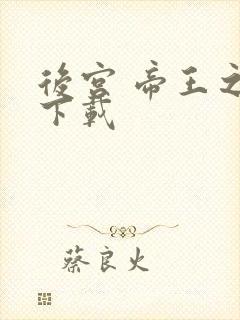 後宮 帝王之
下載
蔡良火